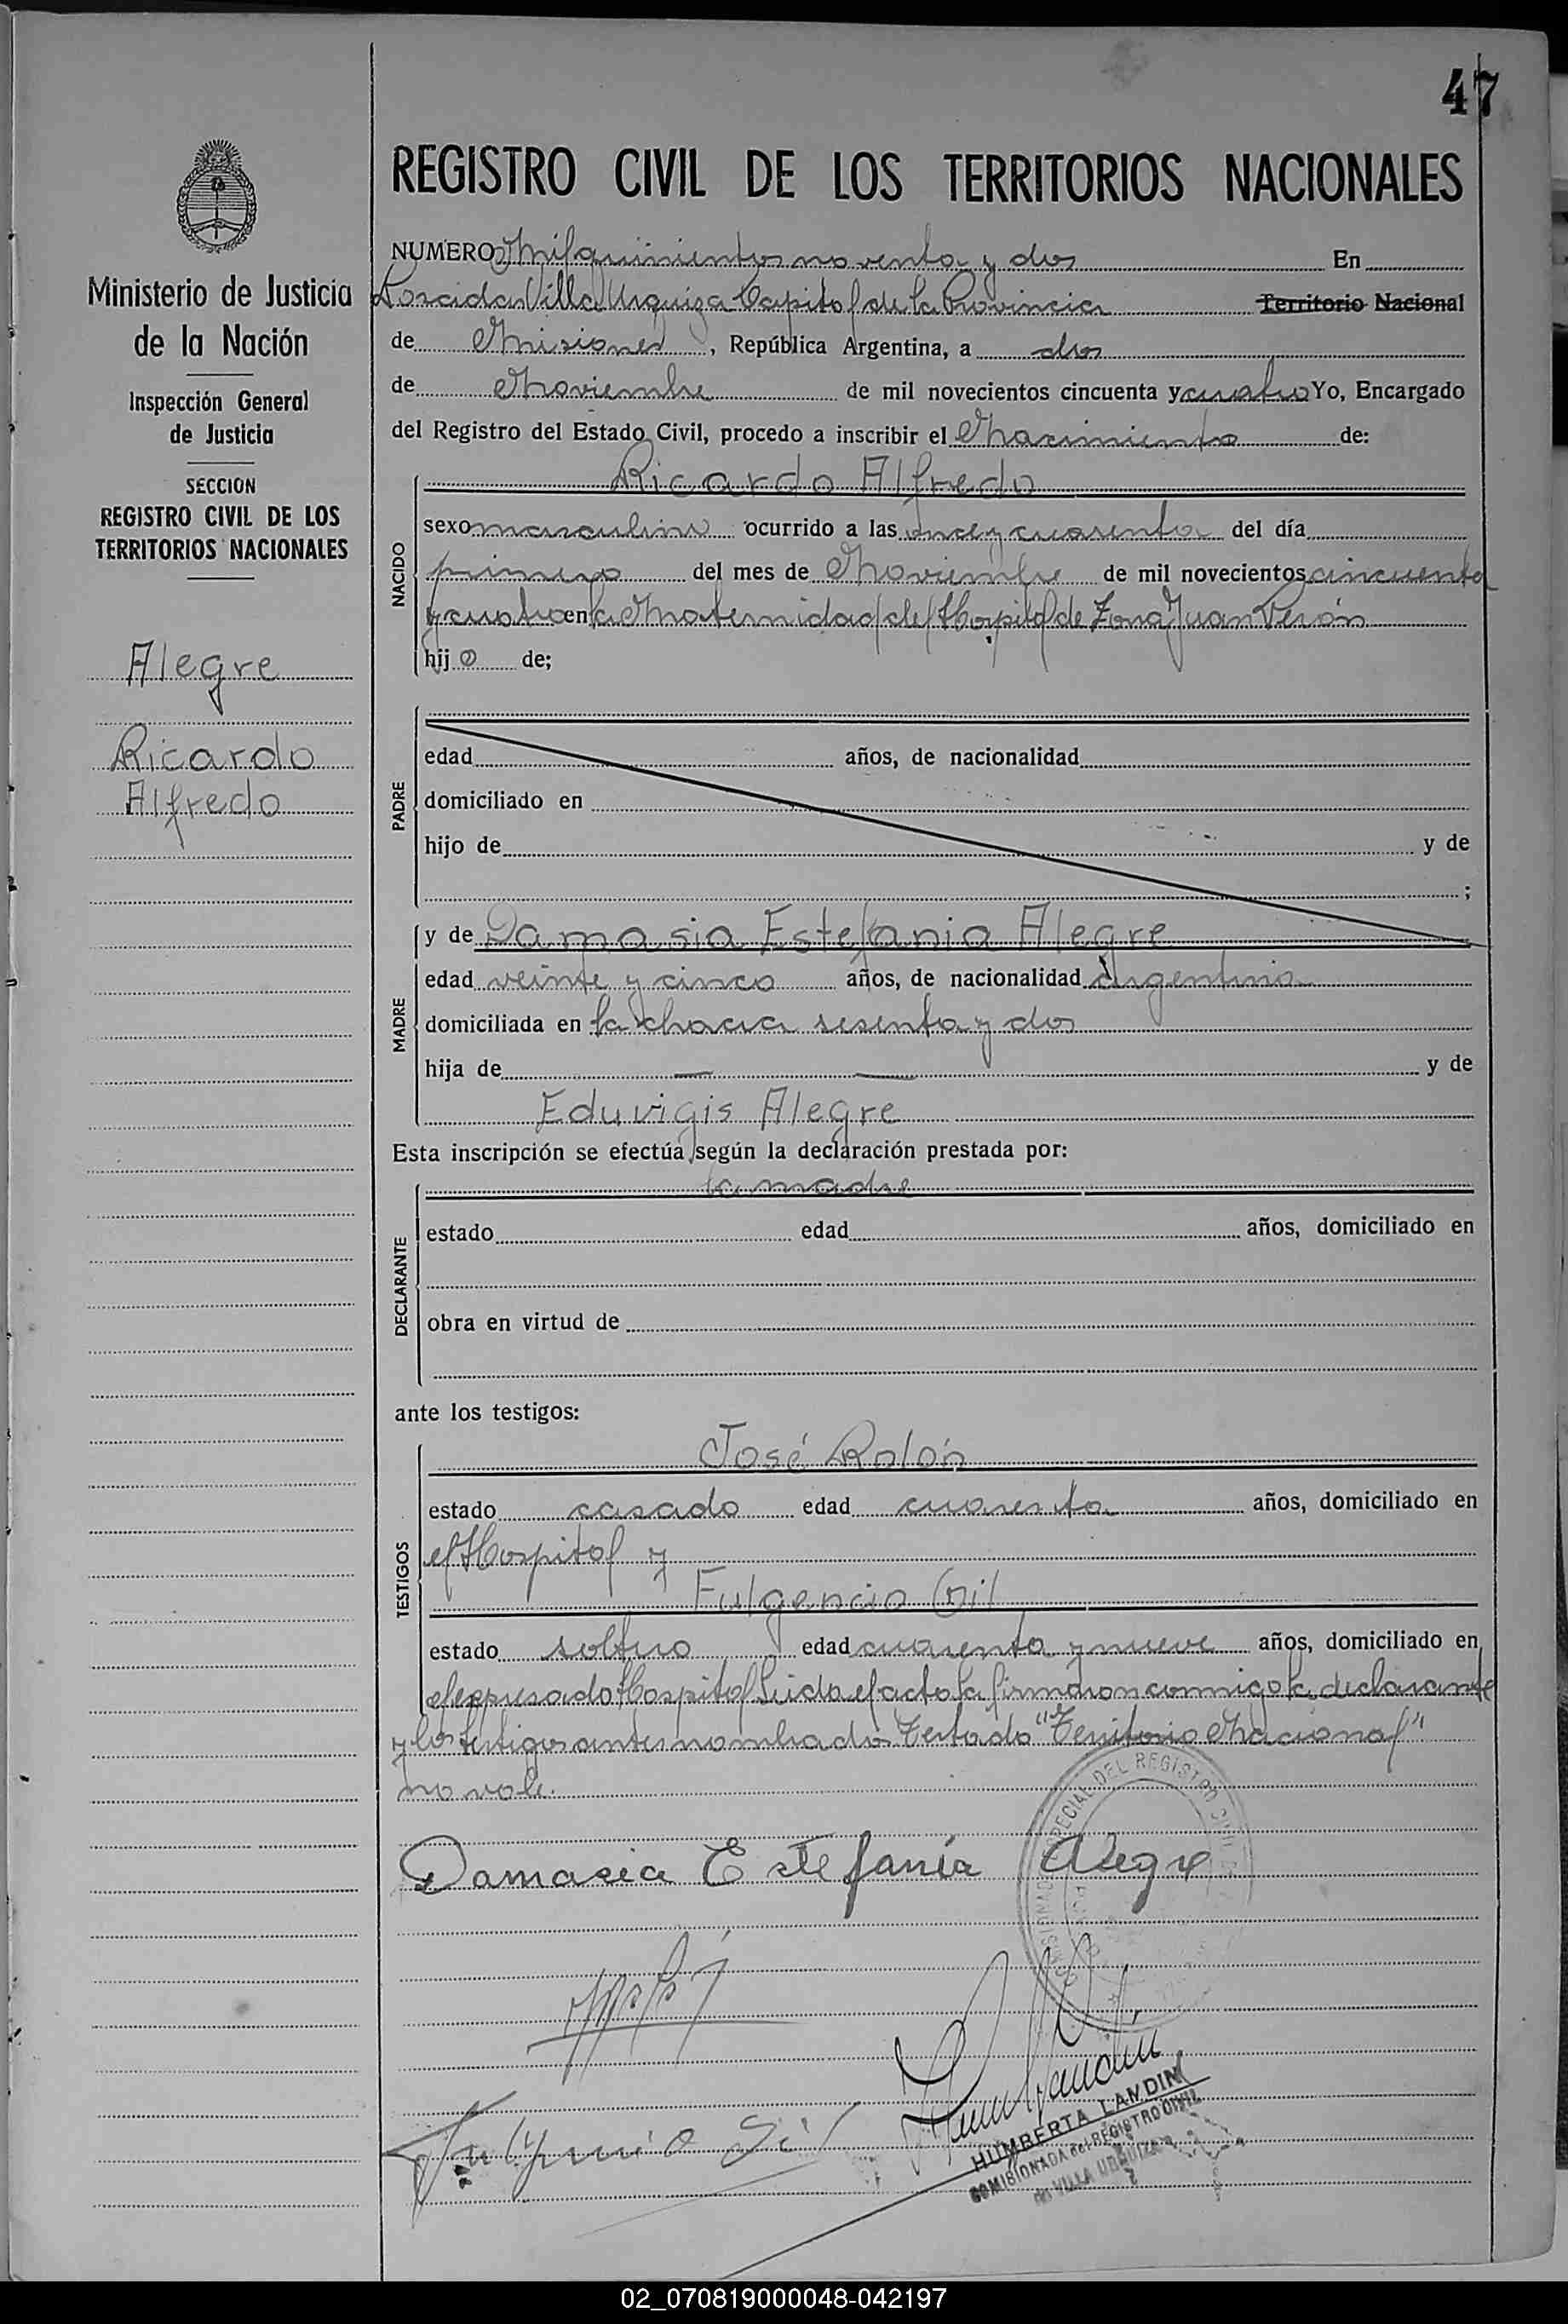 47
Ministerio de Justicia
de la Nación
Inspección General
de Justicia
SECCION
REGISTRO CIVIL DE LOS
TERRITORIOS NACIONALES
Alegre
Ricardo
Alfredo
REGISTRO CIVIL DE LOS TERRITORIOS NACIONALES
NUMERO Mil quinientos noventa y dos En
Posadas Villa Urquiza Capital de la Provincia Territorio Nacional
de Misiones, República Argentina, a dos
de Noviembre de mil novecientos cincuenta y cuatro Yo, Encargado
del Registro del Estado Civil, procedo a inscribir el Nacimiento de:
NACIDO
Ricardo Alfredo
sexo masculino ocurrido a las once y cuarenta del día
primero del mes de Noviembre de mil novecientos cincuenta
y cuatro en la Maternidad del Hospital de Zona Juan Perón
hijo de;
PADRE
edad años, de nacionalidad
domiciliado en
hijo de y de
;
MADRE
y de Damasia Estefania Alegre
edad veinte y cinco años, de nacionalidad argentina
domiciliada en la chacra sesenta y dos
hija de — — y de
Eduvigis Alegre
Esta inscripción se efectúa según la declaración prestada por:
DECLARANTE
la madre
estado edad años, domiciliado en
obra en virtud de
ante los testigos:
TESTIGOS
José Rolón
estado casado edad cuarenta años, domiciliado en
el Hospital y
Fulgencio Gil
estado soltero edad cuarenta y nueve años, domiciliado en
el expresado Hospital Leida el acta la firmaron conmigo la declarante
y los testigos antes nombrados Testado "Territorio Nacional"
no vale.
Damasia Estefanía Alegre
DEL REGISTRO CIVIL
Fulgencio Gil
HUMBERTA LANDINI
COMISIONADA del REGISTRO CIVIL
de VILLA URQUIZA
02_070819000048-042197